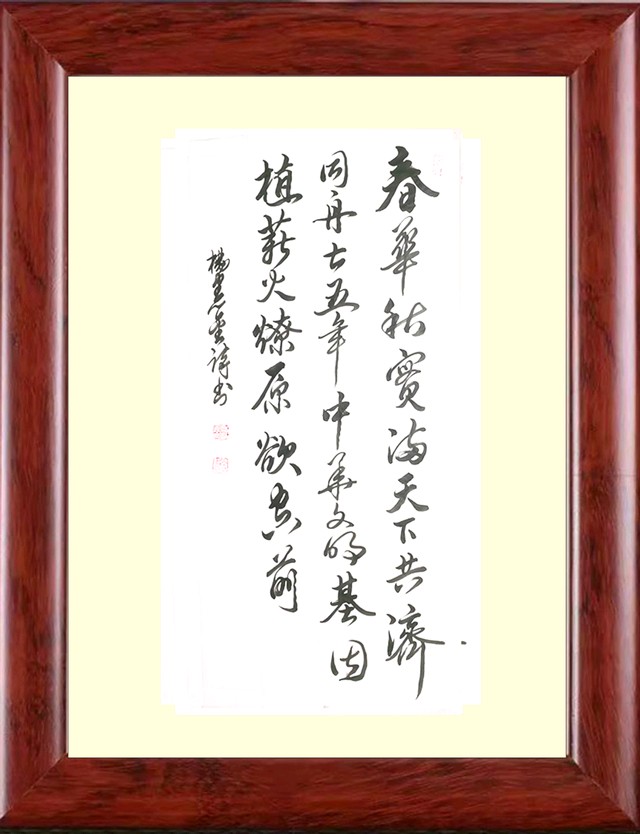 春華秋實滿天下共濟
同舟七五年中華文明基因
植薪火燎原欲空前
楊景春堂詩書